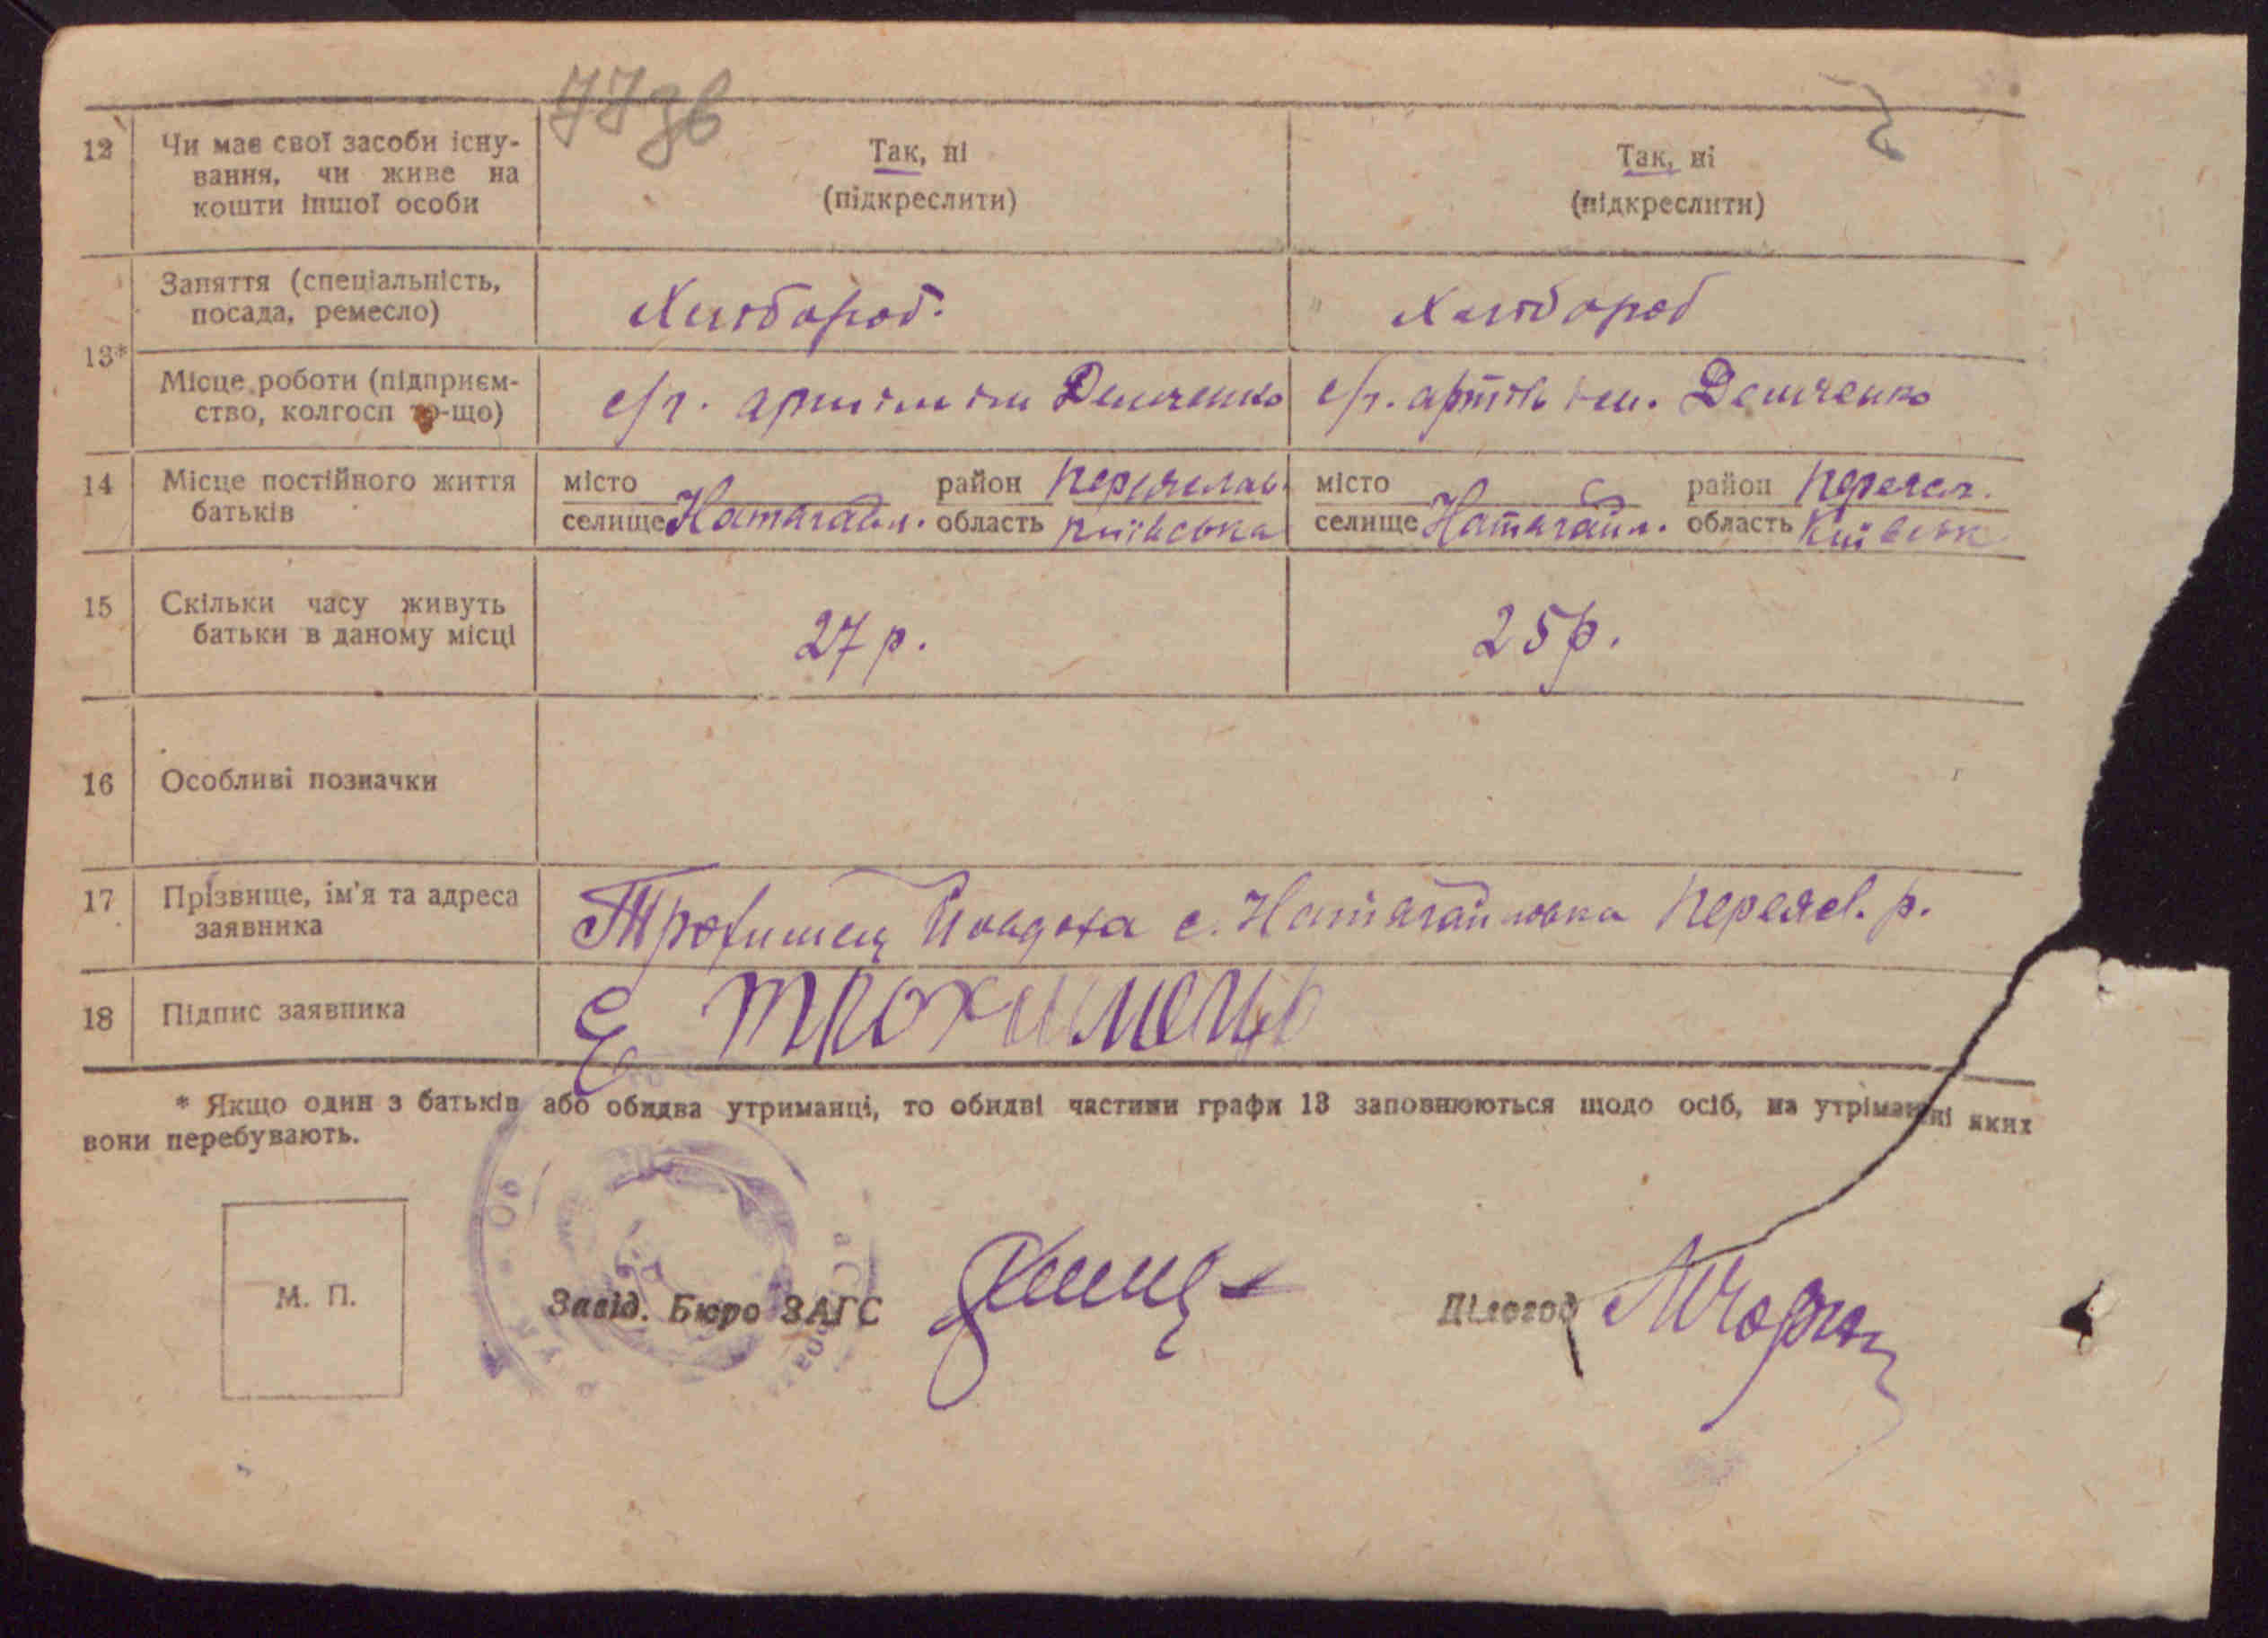 77 зв
12 Чи має свої засоби існу-
вання, чи живе на
кошти іншої особи
Так, ні
(підкреслити)
Так, ні
(підкреслити)
13*
Заняття (спеціальність,
посада, ремесло)
Хлібороб.
Хлібороб
Місце роботи (підприєм-
ство, колгосп то-що)
с/г. артіль ім Демченко
с/г. артіль ім. Демченко
14 Місце постійного життя
батьків
місто район Переяслав.
селище область Київська
місто район Переясл.
селище область Київськ
15 Скільки часу живуть
батьки в даному місці
27 р.
25 р.
16 Особливі позначки
17 Прізвище, ім'я та адреса
заявника
Трохимец с. Переясл. р.
18 Підпис заявника
Є Трохимець
* Якщо один з батьків або обидва утриманці, то обидві частини графи 13 заповнюються щодо осіб, на утріманні яких
вони перебувають.
М. П.
Завід. Бюро ЗАГС
Діловод